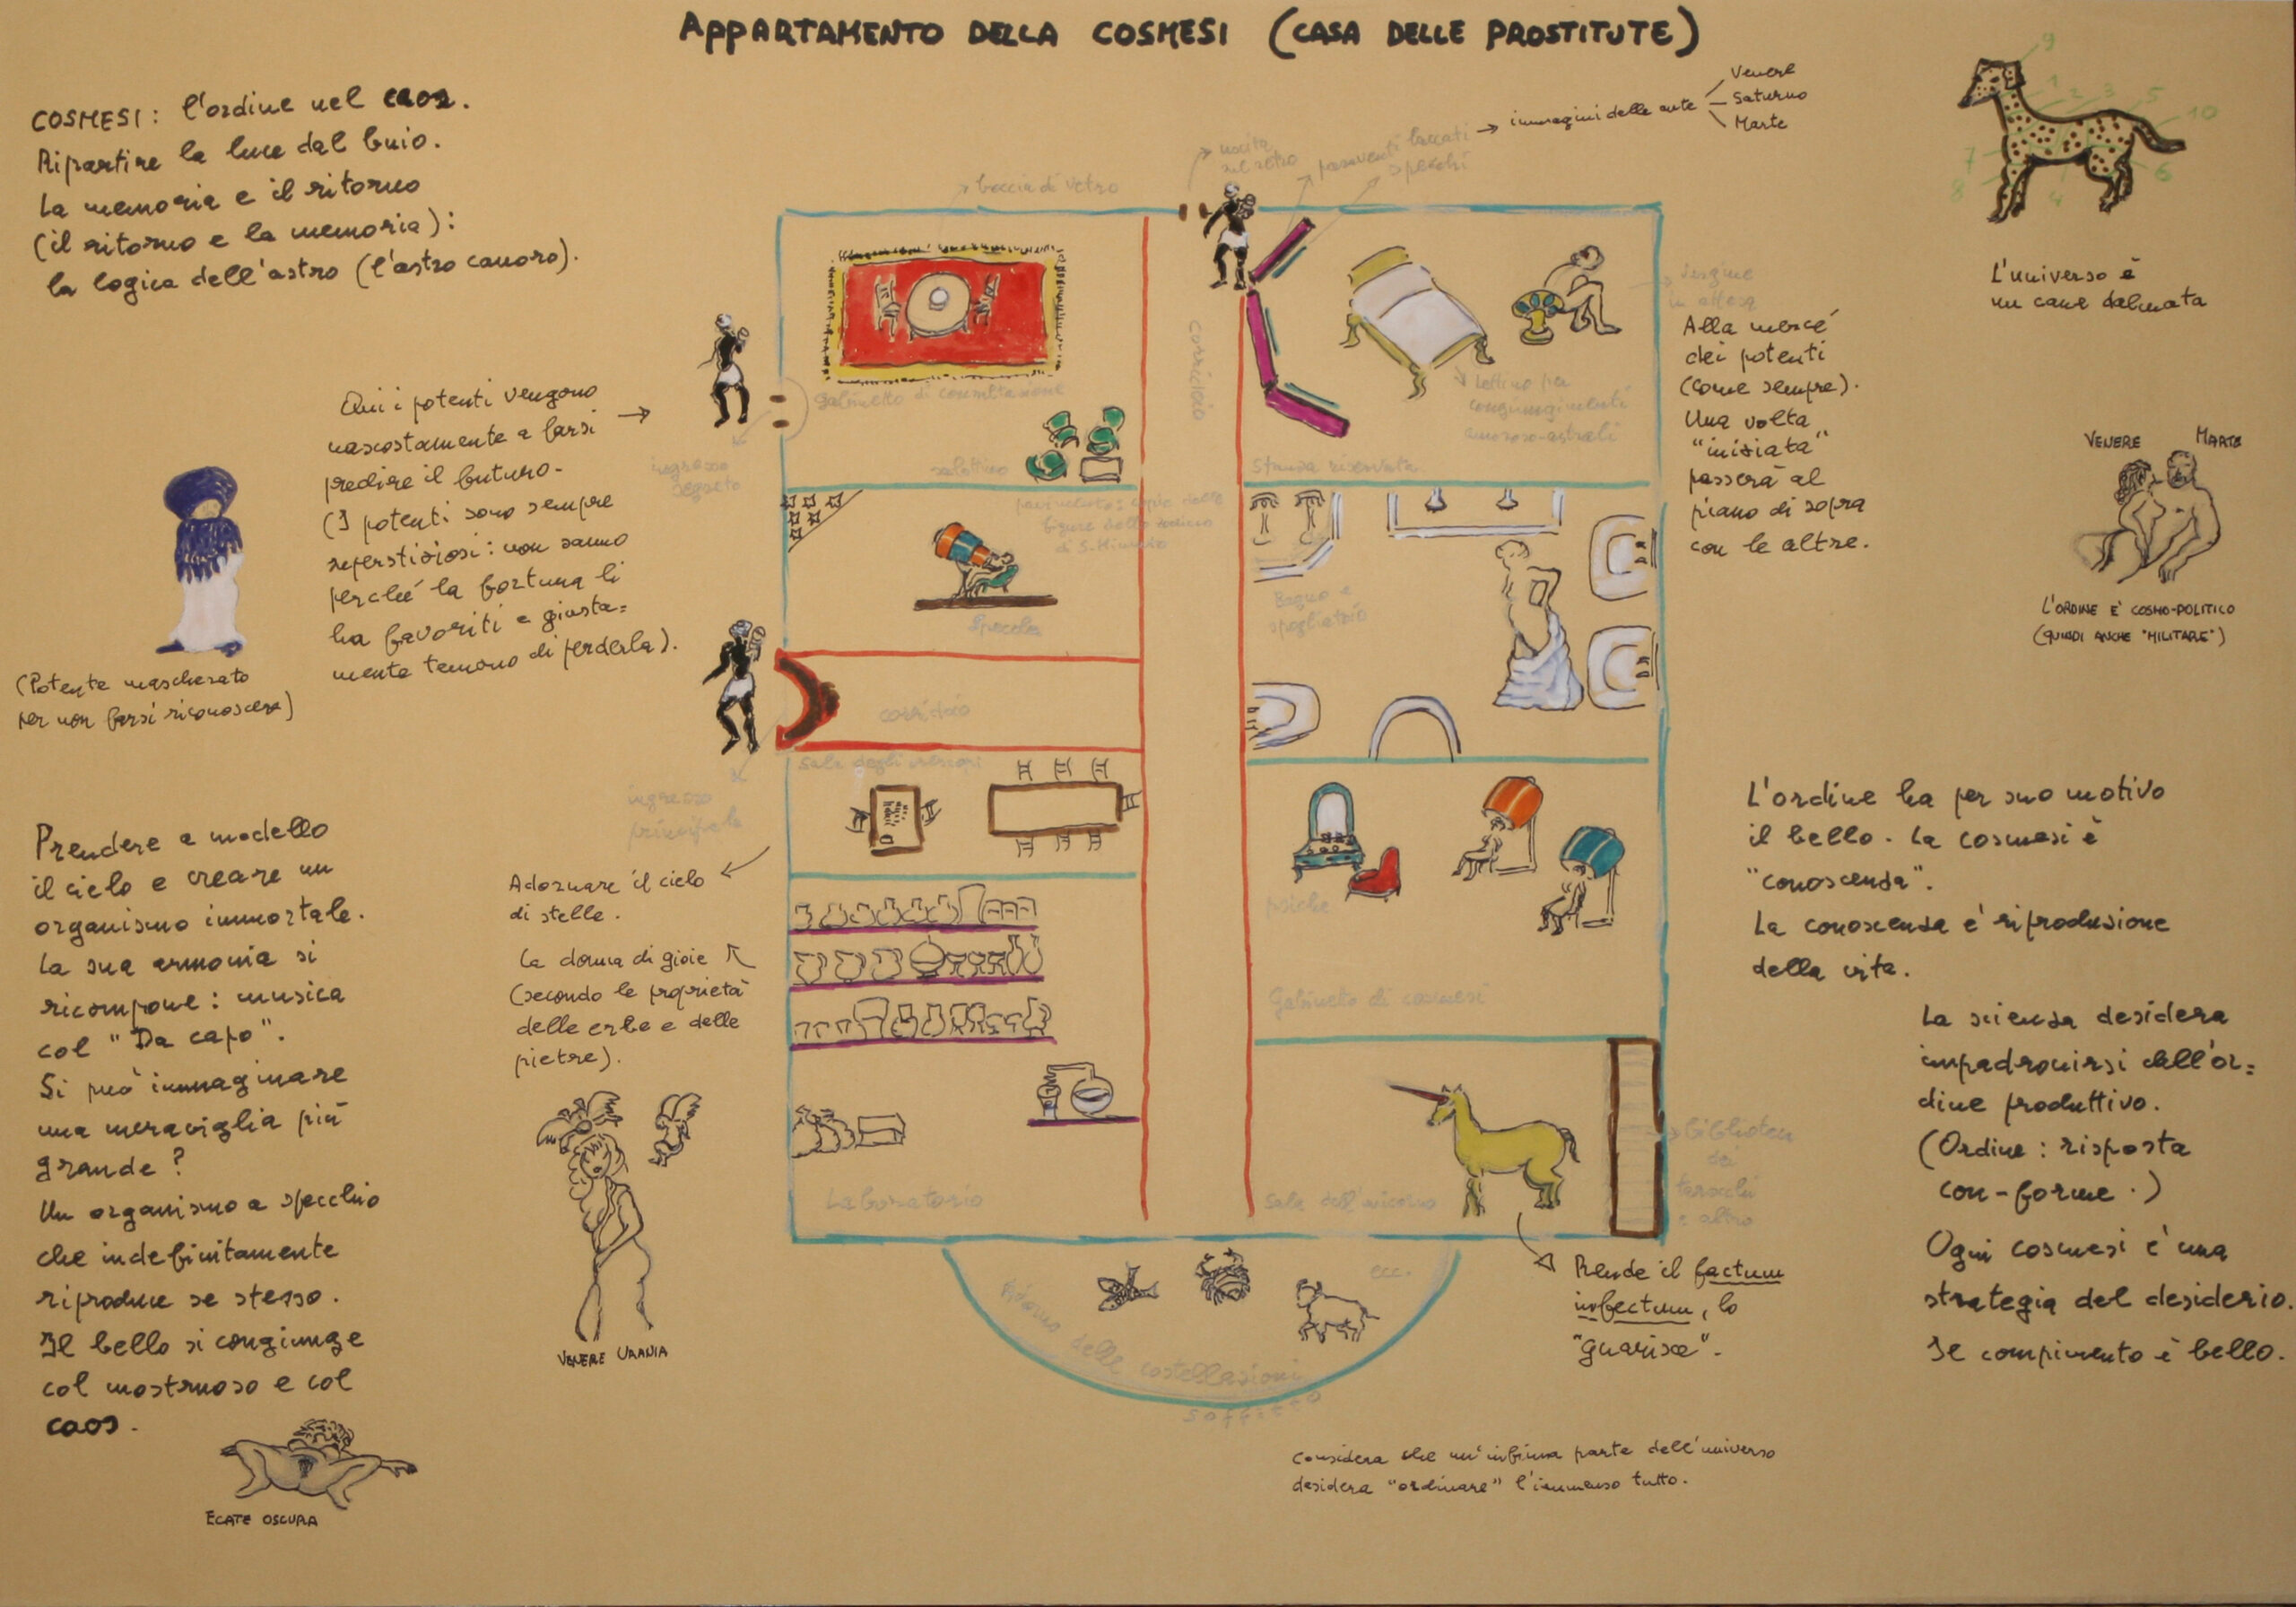 APPARTAMENTO DELLA COSMESI (CASA DELLE PROSTITUTE)
COSMESI: l'ordine nel caos.
Ripartire la luce dal buio.
La memoria e il ritorno
(il ritorno e la memoria):
la logica dell'astro (l'astro canoro).
Qui i potenti vengono
nascostamente a farsi
predire il futuro.
(I potenti sono sempre
superstiziosi: non sanno
perché la fortuna li
ha favoriti e giusta=
mente temono di perderla).
(Potente mascherato
per non farsi riconoscere)
Prendere a modello
il cielo e creare un
organismo immortale.
La sua armonia si
ricompone: musica
col "Da capo".
Si può immaginare
una meraviglia più
grande?
Un organismo a specchio
che indefinitamente
riproduce se stesso.
Il bello si congiunge
col mostruoso e col
caos.
ECATE OSCURA
Adornare il cielo
di stelle.
La donna di gioie
(secondo le proprietà
delle erbe e delle
pietre).
VENERE URANIA
boccia di vetro
uscita
sul retro
paraventi laccati
specchi
immagini delle ante
Venere
Saturno
Marte
gabinetto di consultazione
salottino
ingresso
segreto
pavimento: copia delle
figure dello zodiaco
di S. Miniato
Specola
corridoio
corridoio
ingresso
principale
Sala degli oroscopi
Laboratorio
Stanza riservata
lettino per
congiungimenti
amoroso-astrali
vergine
in attesa
Bagno e
spogliatoio
psiche
Gabinetto di cosmesi
Sala dell'unicorno
biblioteca
dei
tarocchi
e altro
ecc.
delle costellazioni
soffitto
Alla mercé
dei potenti
(come sempre).
Una volta
"iniziata"
passerà al
piano di sopra
con le altre.
L'universo è
un cane dalmata
9
1
2
3
5
10
7
8
4
6
VENERE
MARTE
L'ORDINE E' COSMO-POLITICO
(QUINDI ANCHE "MILITARE")
L'ordine ha per suo motivo
il bello. La cosmesi è
"conoscenza".
La conoscenza è riproduzione
della vita.
La scienza desidera
impadronirsi dell'or=
dine produttivo.
(Ordine: risposta
con-forme.)
Ogni cosmesi è una
strategia del desiderio.
Il compimento è bello.
Rende il factum
infectum, lo
"guarisce".
Considera che un'infima parte dell'universo
desidera "ordinare" l'immenso tutto.